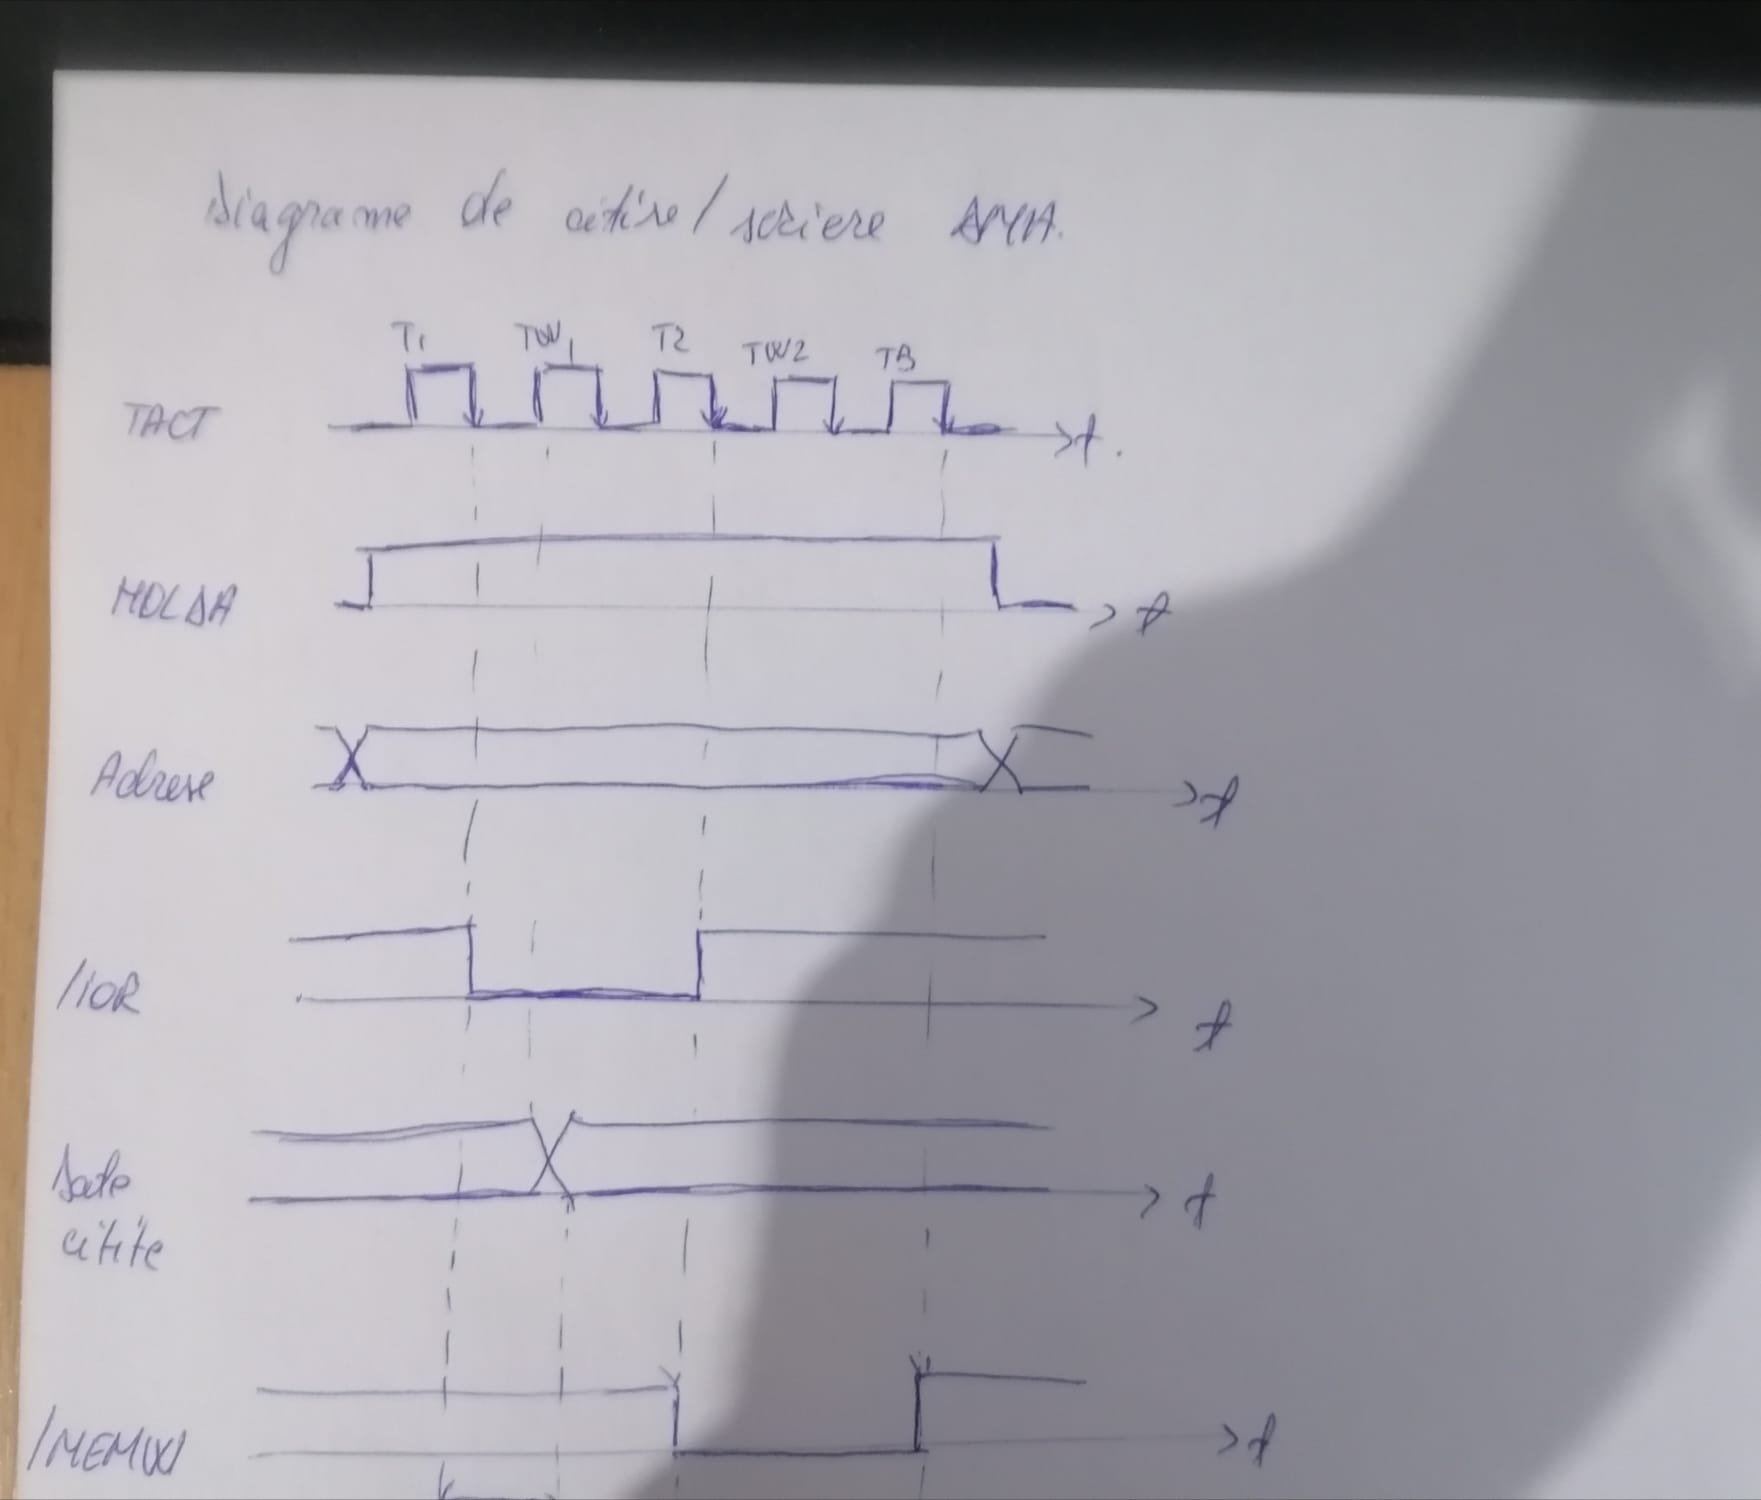 Diagrame de citire/scriere DMA.
T1 TW1 T2 TW2 T3
TACT t.
HOLDA t
Adrese t
/IOR t
Date t
citite
/MEMW t